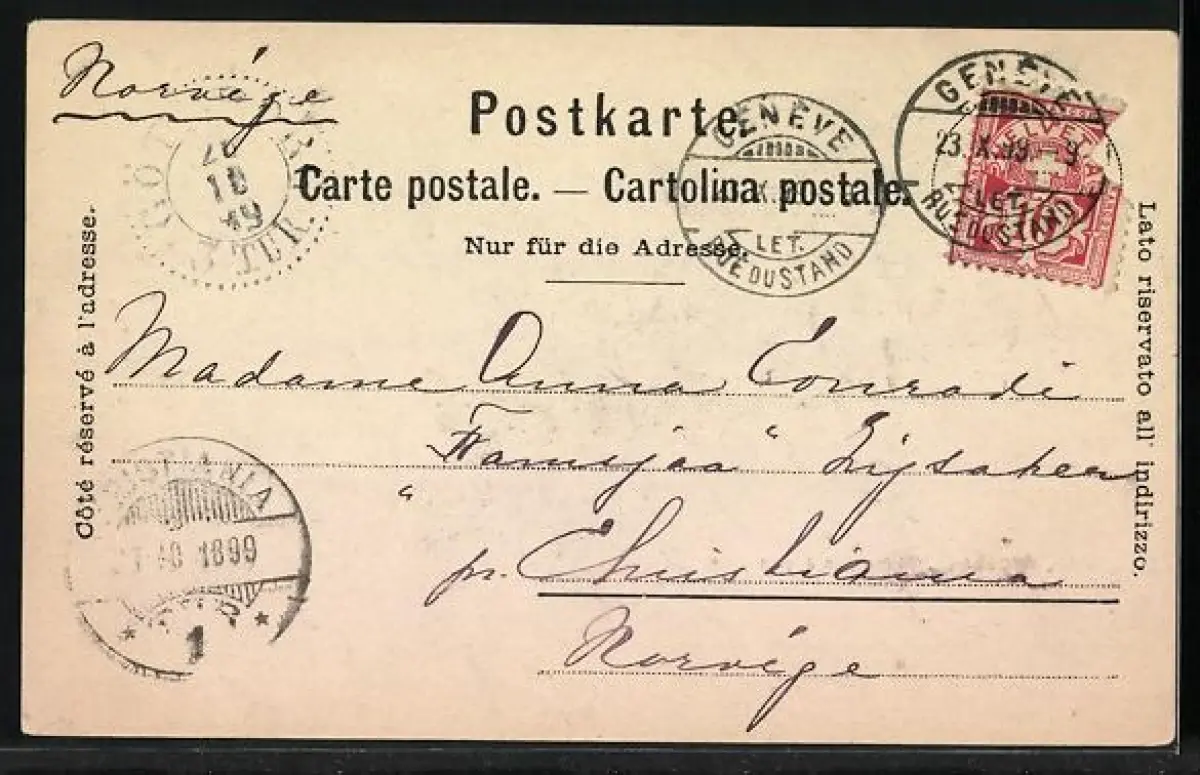 Norvége
Postkarte.
Carte postale. — Cartolina postale.
Nur für die Adresse.
GENÈVE
LET.
RUE DU STAND
GENÈVE
23. X. 99. 9
LET.
RUE DU STAND
HELVETIA
Côté réservé à l'adresse.
Lato riservato all' indirizzo.
Madame Anna Conradi
"
pr. Christiania
Norvége
1899
1